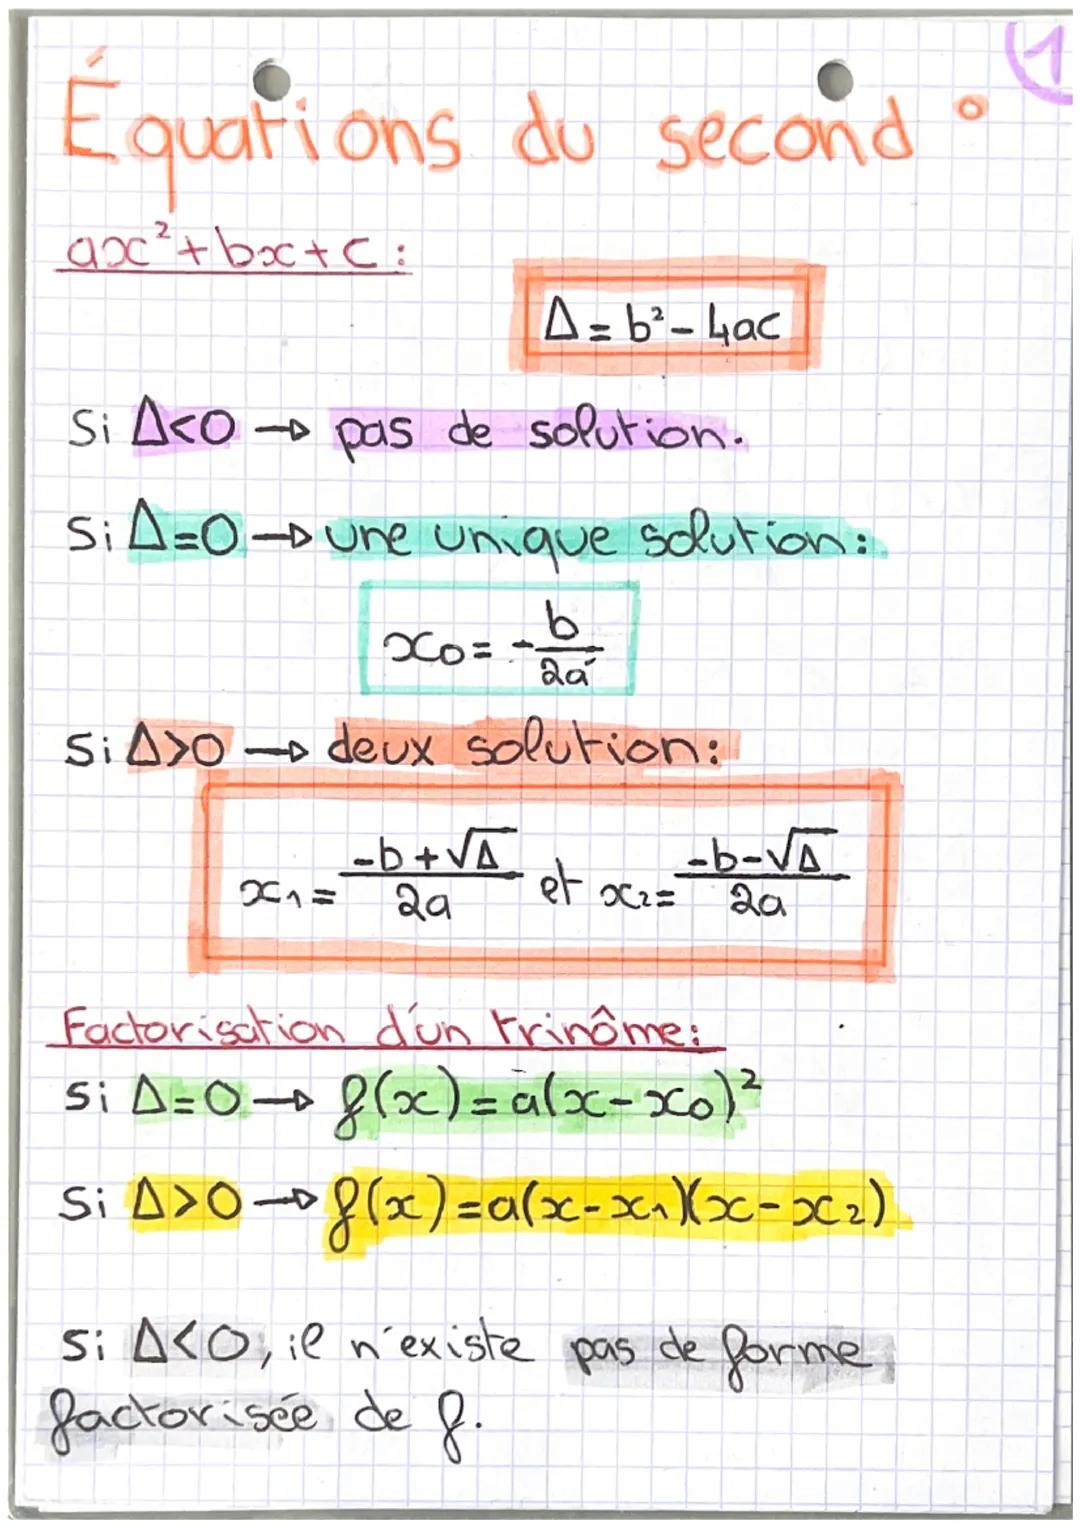 1
Équations du second °
ax²+bx+c :
Δ = b² - 4ac
Si Δ<0 → pas de solution.
Si Δ=0 → une unique solution :
x₀ = -b/2a
Si Δ>0 → deux solution :
x₁ = (-b+√Δ)/2a et x₂ = (-b-√Δ)/2a
Factorisation d'un trinôme :
Si Δ=0 → f(x) = a(x-x₀)²
Si Δ>0 → f(x) = a(x-x₁)(x-x₂)
Si Δ<0, il n'existe pas de forme
factorisée de f.